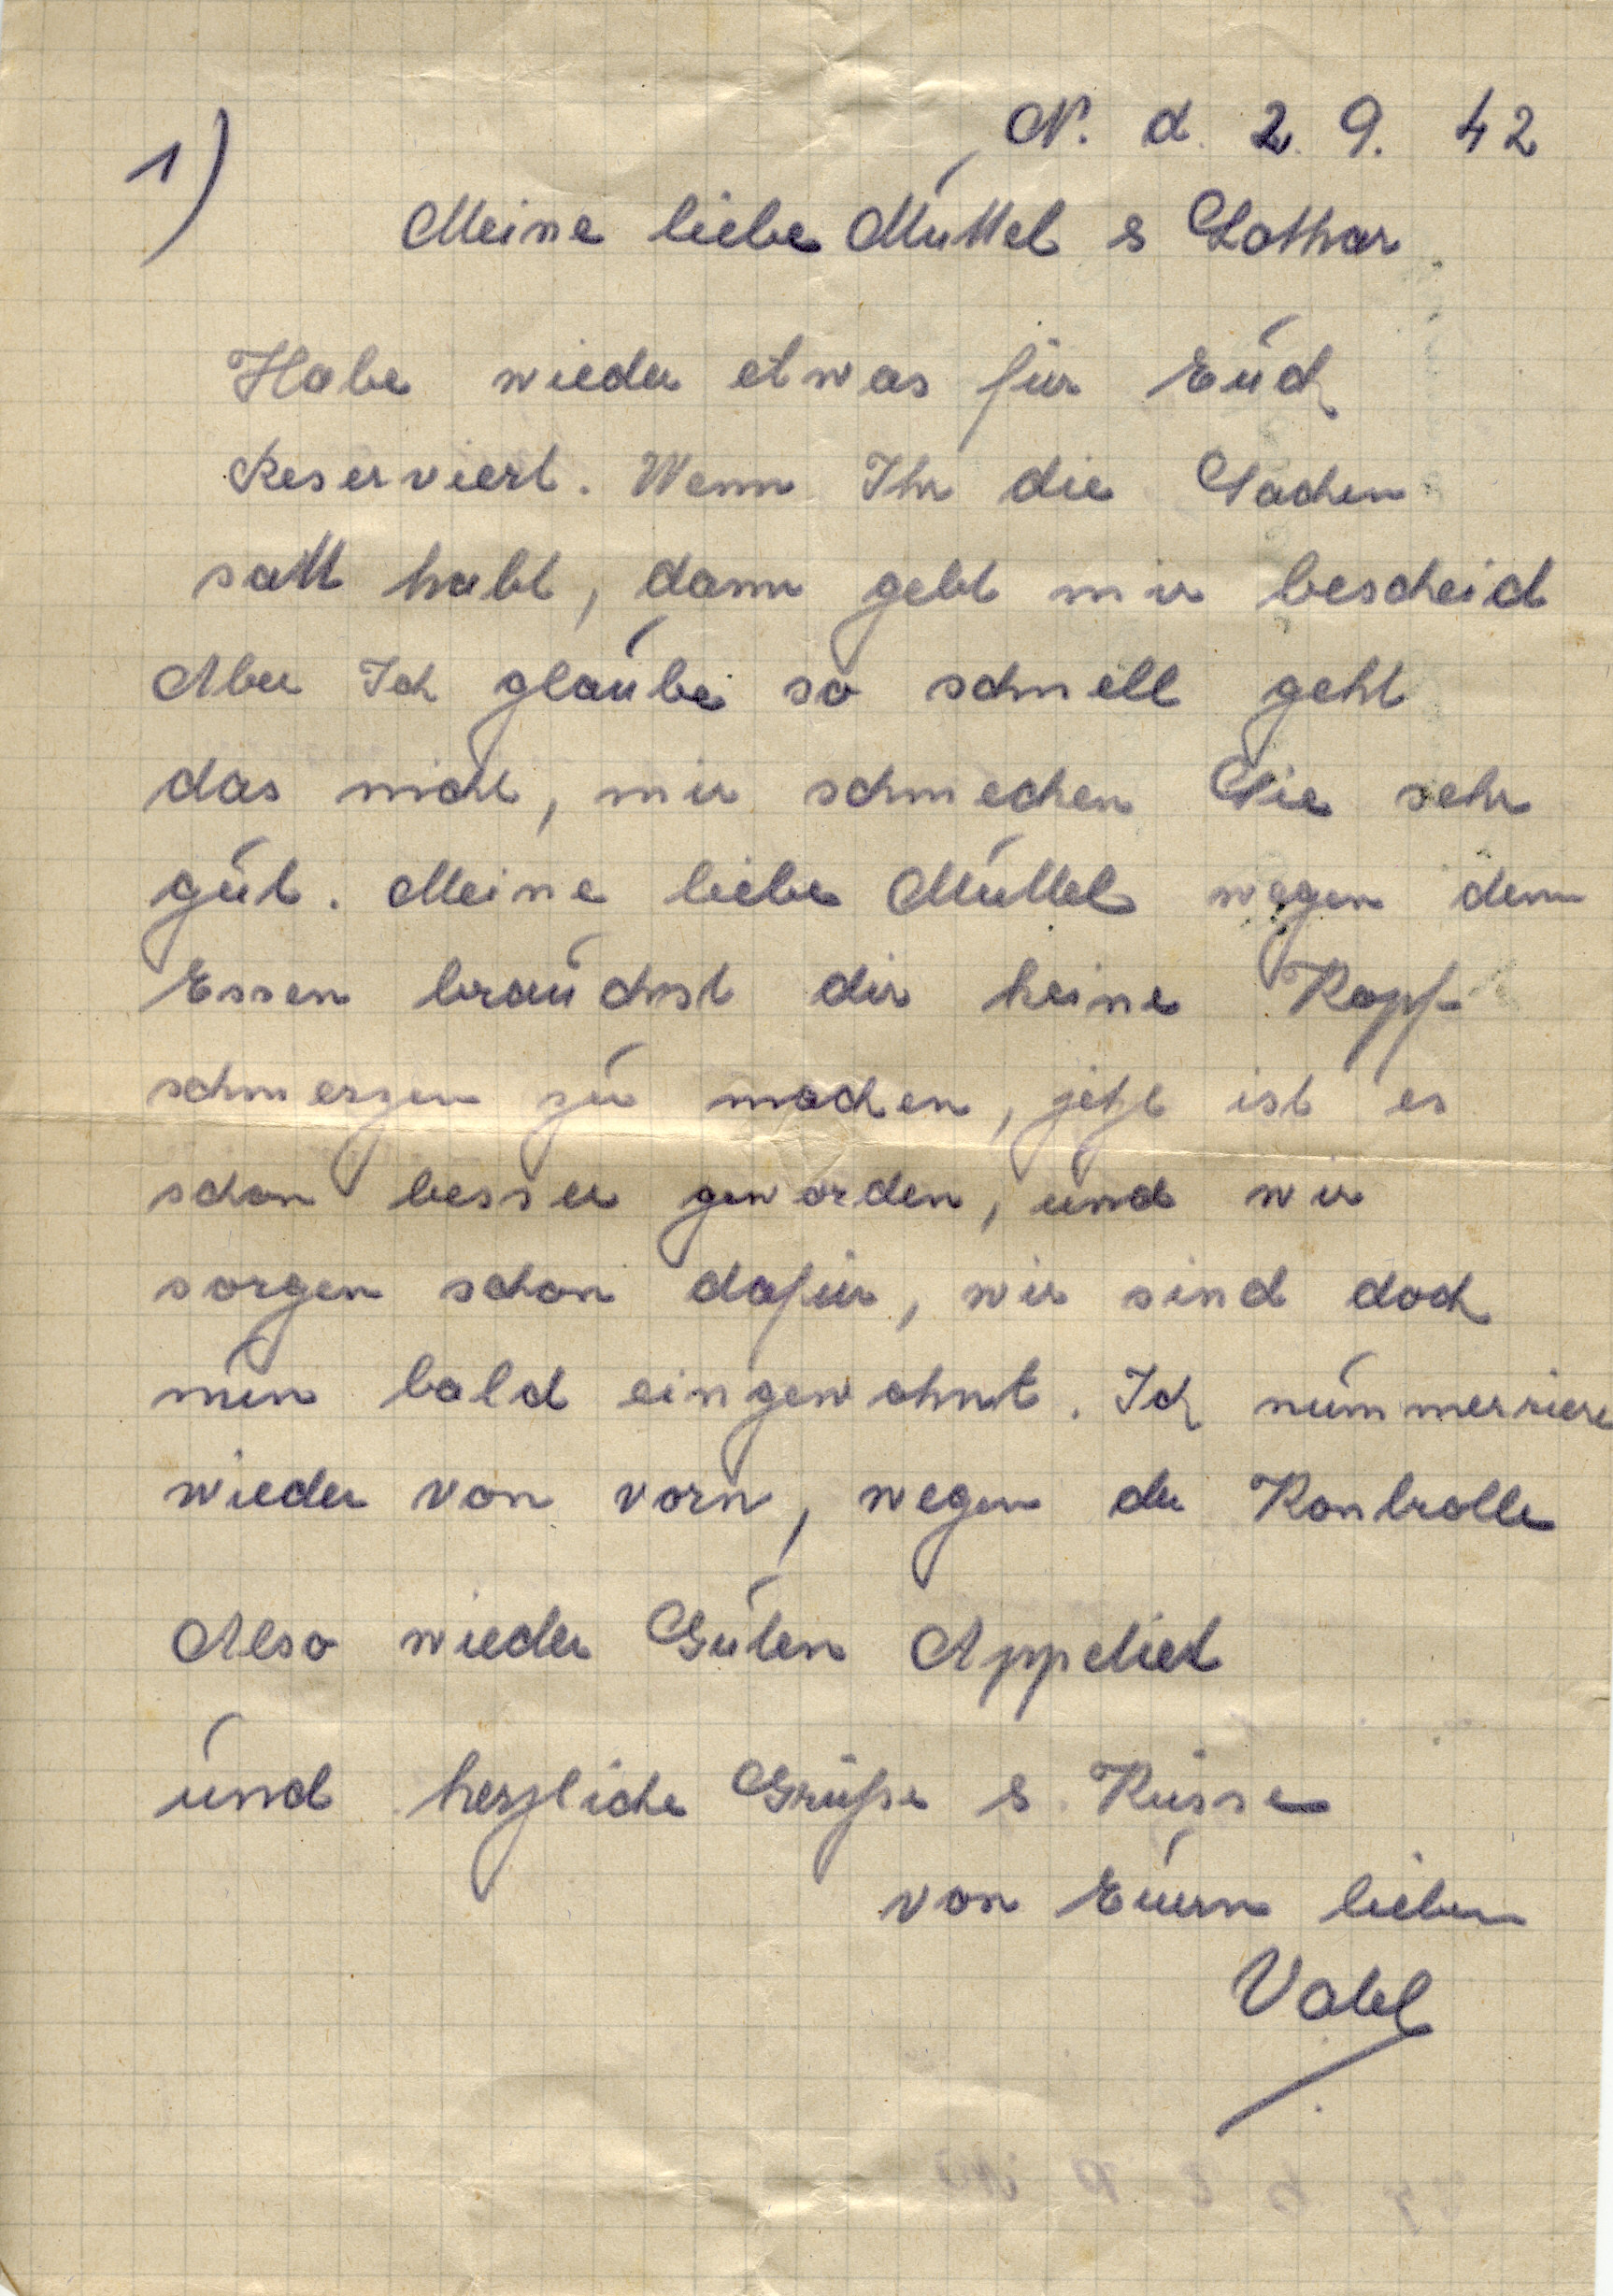 N. d. 2. 9. 42
1)
Meine liebe Muttel & Lothar
Habe wieder etwas für Euch
Reserviert. Wenn Ihr die Sachen
satt habt, dann gebt mir bescheid
Aber Ich glaube so schnell geht
das nicht, mir schmecken Sie sehr
gut. Meine liebe Muttel wegen dem
Essen brauchst dir keine Kopf-
schmerzen zu machen, jetzt ist es
schon besser geworden, und wir
sorgen schon dafür, wir sind doch
nun bald eingewohnt. Ich nummerriere
wieder von vorn, wegen der Kontrolle
Also wieder Guten Appetiet
und herzliche Grüße & Küsse
von Euern lieben
Vatel